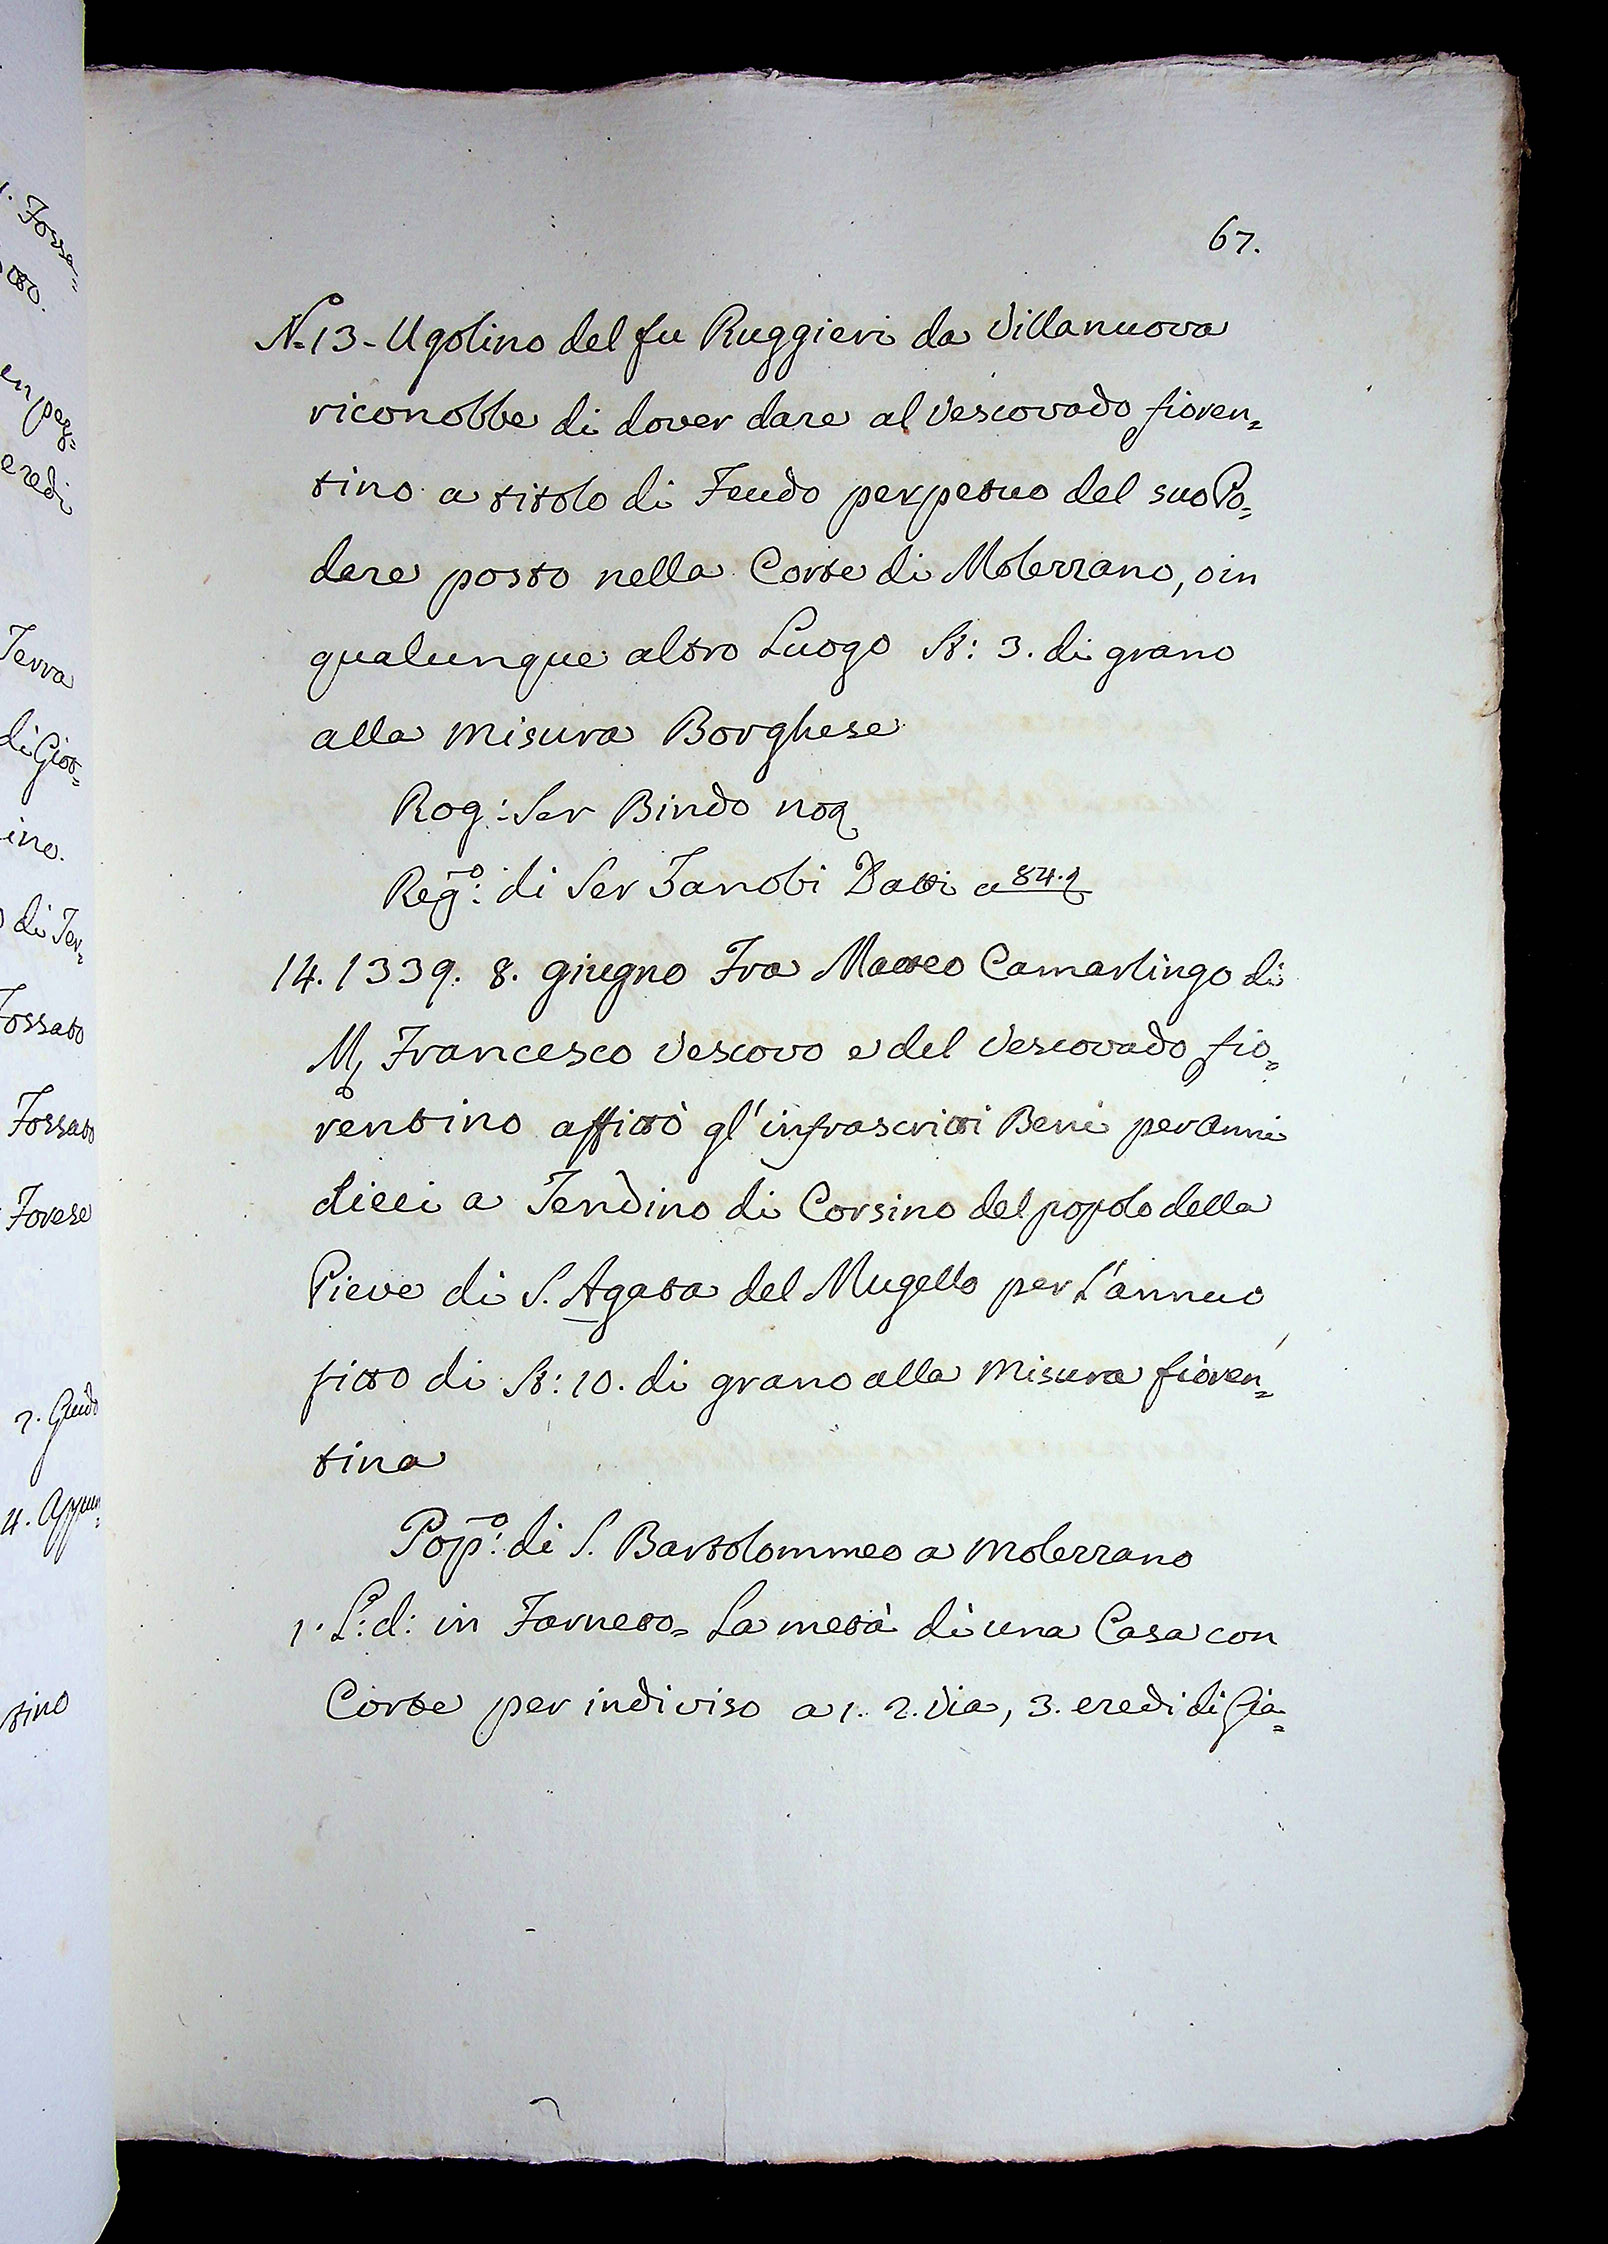 67.
N.º 13 - Ugolino del fu Ruggieri da Villanuova
riconobbe di dover dare al Vescovado fioren=
tino a titolo di Feudo perpetuo del suo Po=
dere posto nella Corte di Molezzano, o in
qualunque altro Luogo St: 3. di grano
alla misura Borghese
Rog: Ser Bindo not
Reg.º: di Ser Zanobi Datti a 84.
14. 1339. 8. giugno Fra Matteo Camarlingo di
M, Francesco Vescovo e del Vescovado fio=
rentino affittò gl'infrascritti Beni per Anni
dieci a Tendino di Corsino del popolo della
Pieve di S. Agata del Mugello per l'annuo
fitto di St: 10. di grano alla misura fioren=
tina
Pop.º: di S. Bartolommeo a Molezzano
1. L: d: in Farneto = La metà di una Casa con
Corte per indiviso a 1. 2. Via, 3. eredi di Gia=
Fossa=
eredi
Terra
di Giov=
ino.
di Ter=
Fossato
Fossato
Forese
2. Guido
4. Appun=
tino